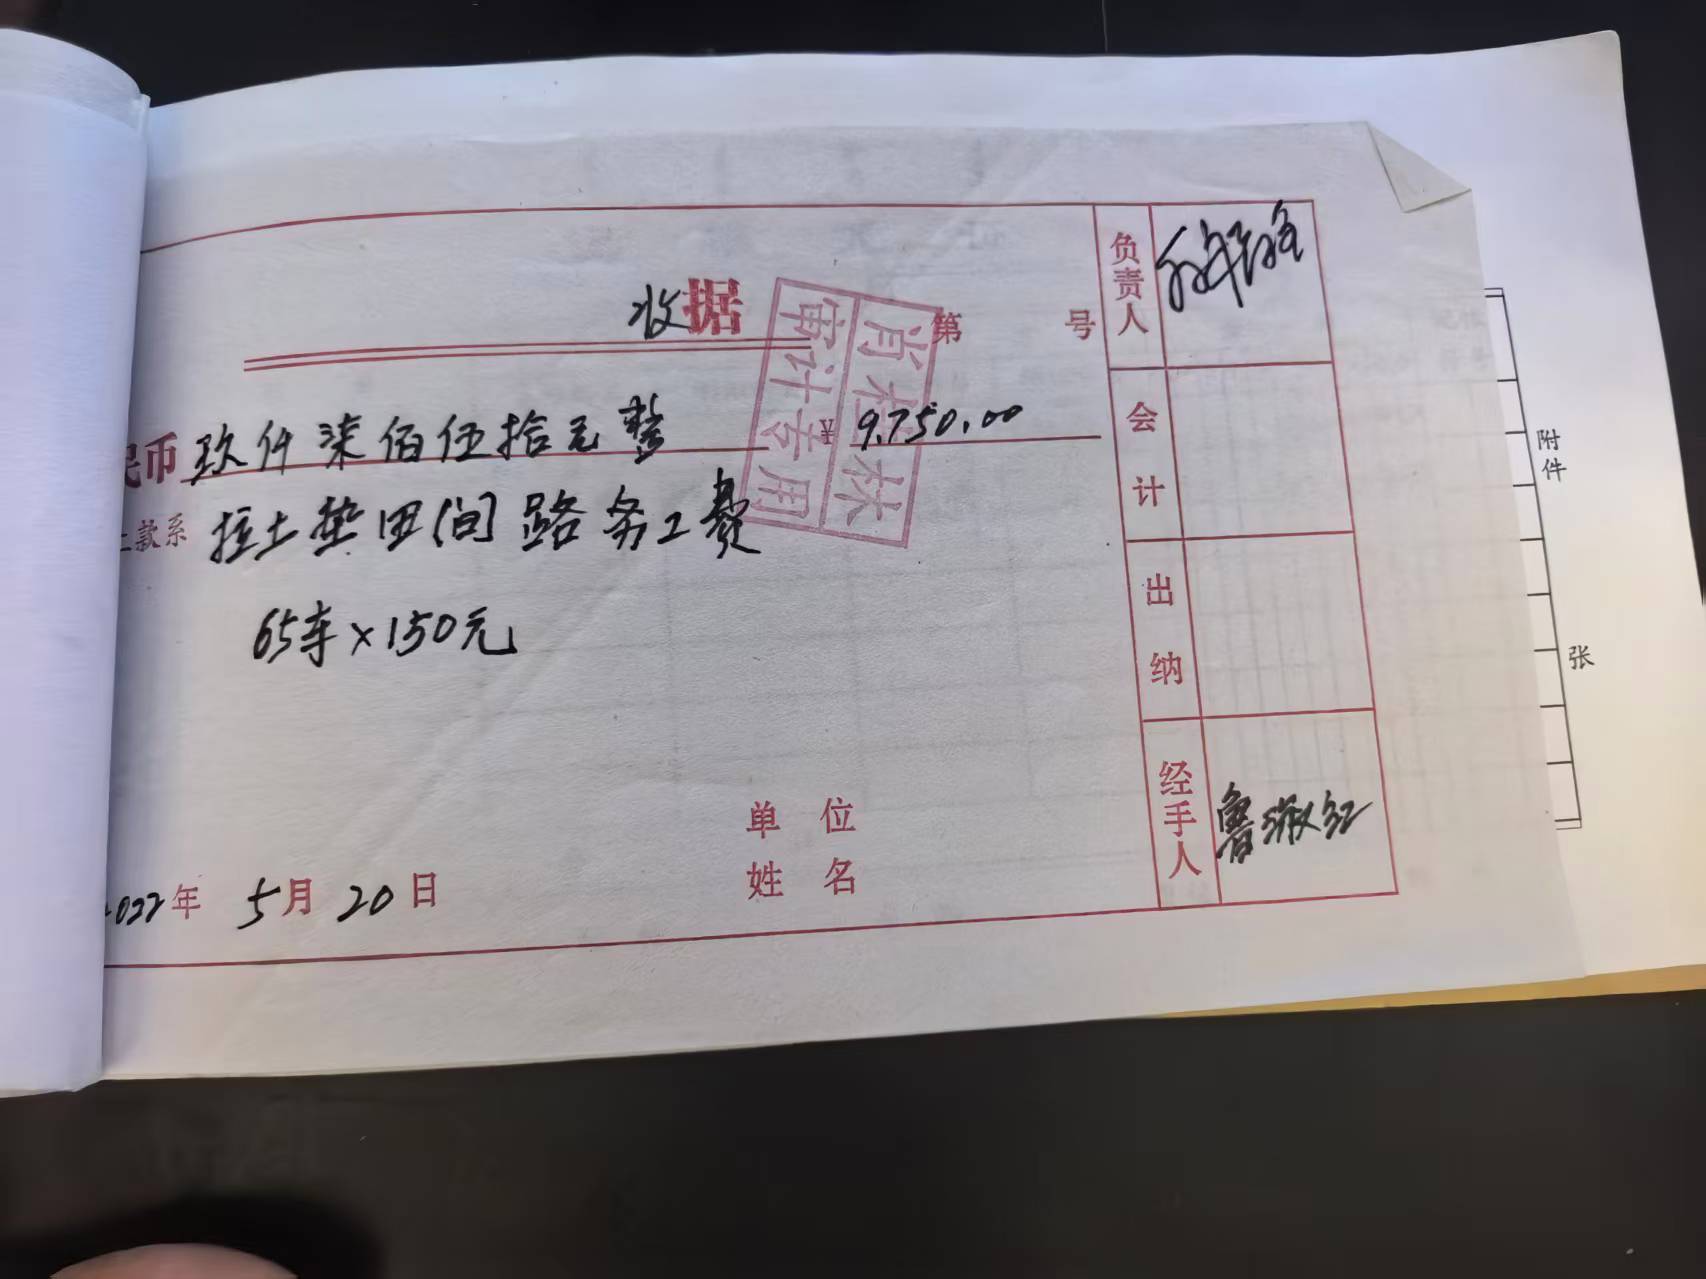 收据 第 号
民币 玖仟柒佰伍拾元整 ¥ 9.750.00
上款系 拉土垫田间路务工费
65车×150元
单位
姓名
2022年 5月 20日
肖桂林
审计专用
负责人
会计
出纳
经手人 鲁淑红
附件
张